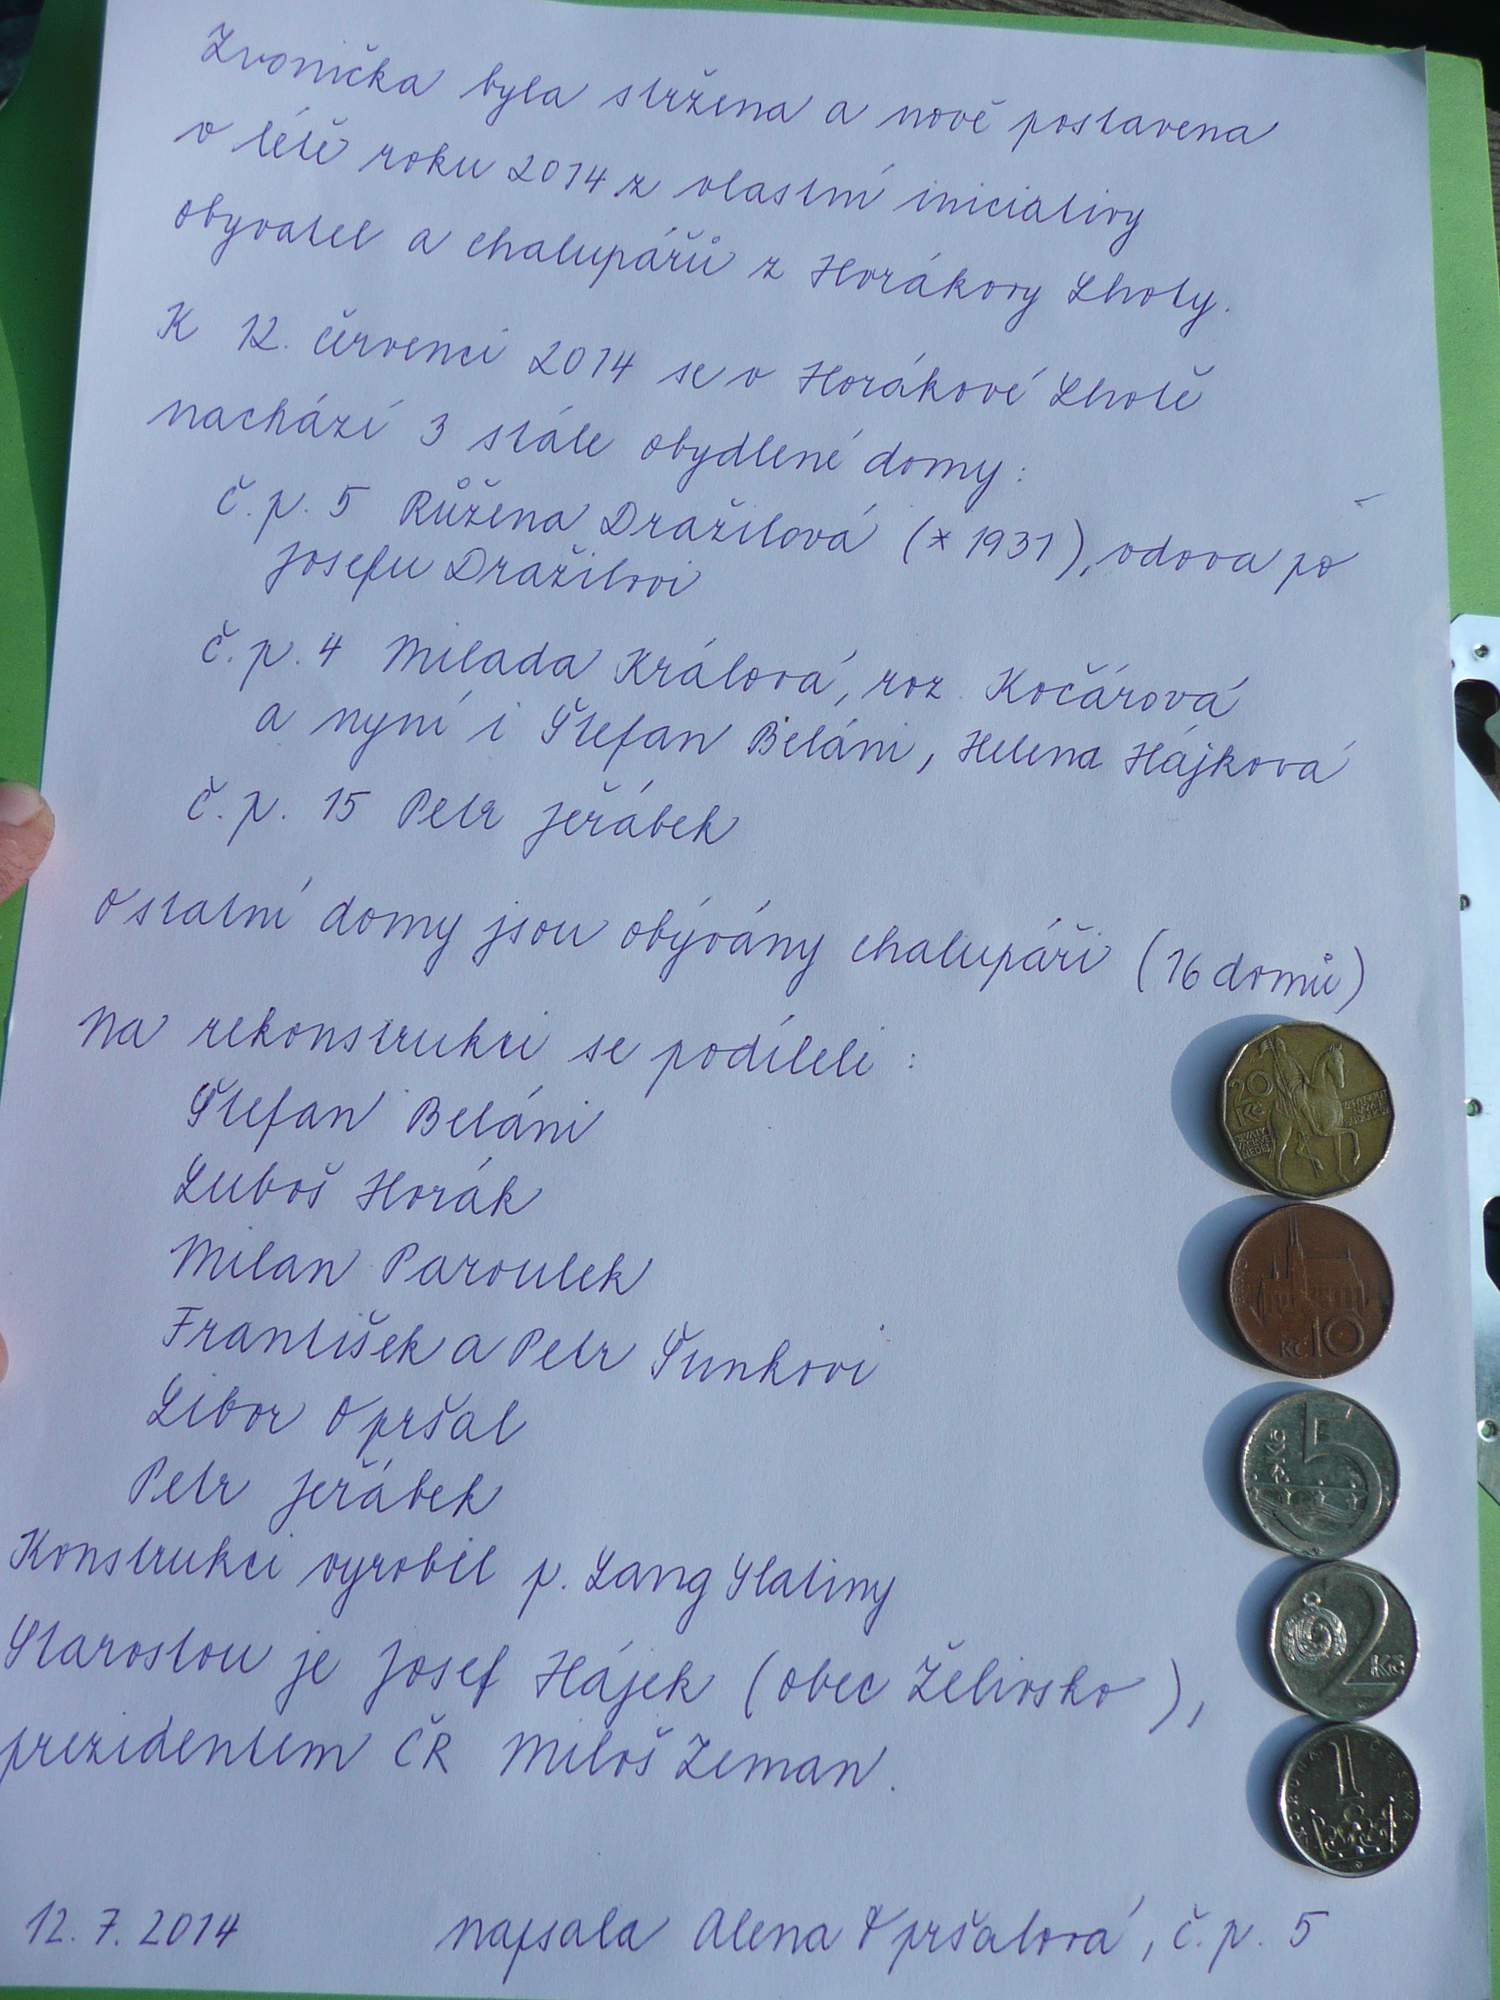 Zvonička byla stržena a nově postavena
v létě roku 2014 z vlastní iniciativy
obyvatel a chalupářů z Horákovy Lhoty.
K 12. červenci 2014 se v Horákové Lhotě
nachází 3 stále obydlené domy:
č.p. 5 Růžena Dražilová (* 1931), vdova po
Josefu Dražilovi
č.p. 4 Milada Králová, roz. Kočárová
a nyní i Štefan Beláni, Helena Hájková
č.p. 15 Petr Jeřábek
Ostatní domy jsou obývány chalupáři (16 domů)
Na rekonstrukci se podíleli:
Štefan Beláni
Luboš Horák
Milan Paroulek
František a Petr Šunkovi
Libor Opršal
Petr Jeřábek
Konstrukci vyrobil p. Lang Slatiny
Starostou je Josef Hájek (obec Želivsko),
prezidentem ČR Miloš Zeman.
12.7.2014 napsala Alena Opršalová, č.p. 5
20
Kč
Kč 10
5
Kč
2
Kč
KORUNA ČESKÁ
1